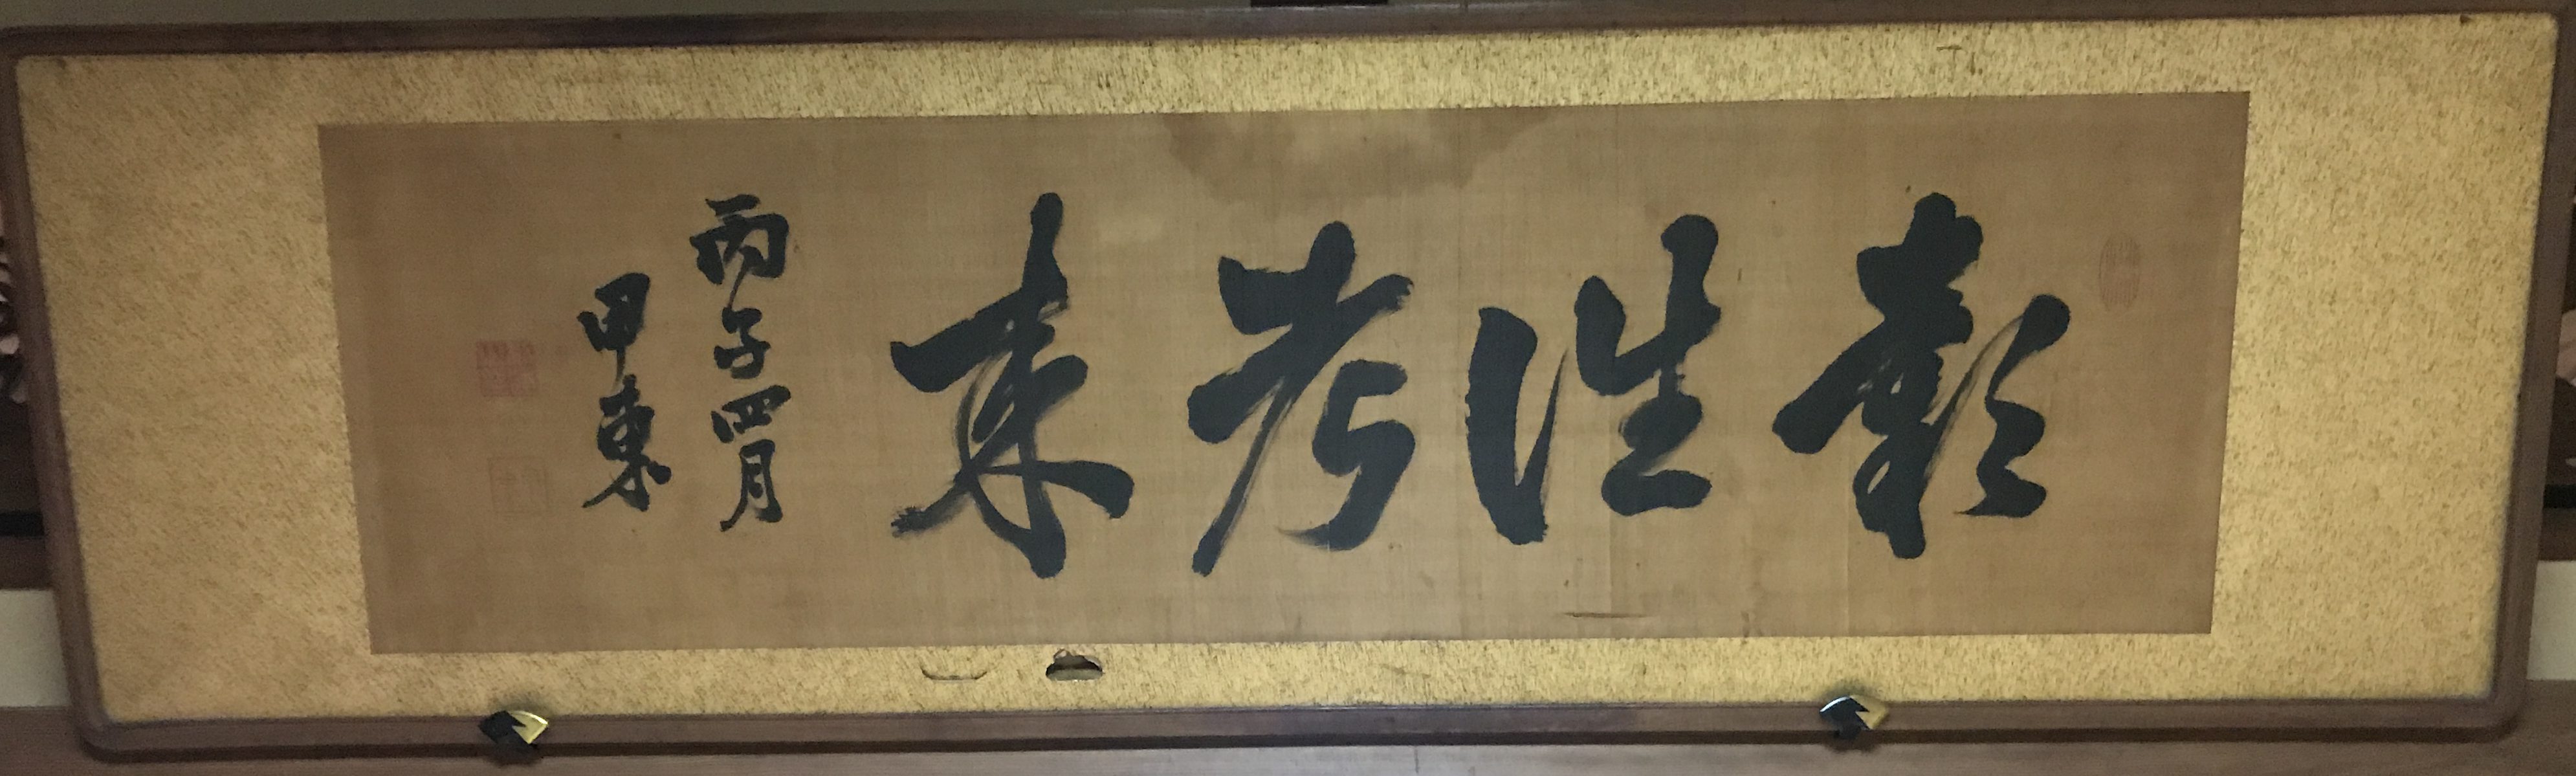 彰往考来
丙子四月
甲東